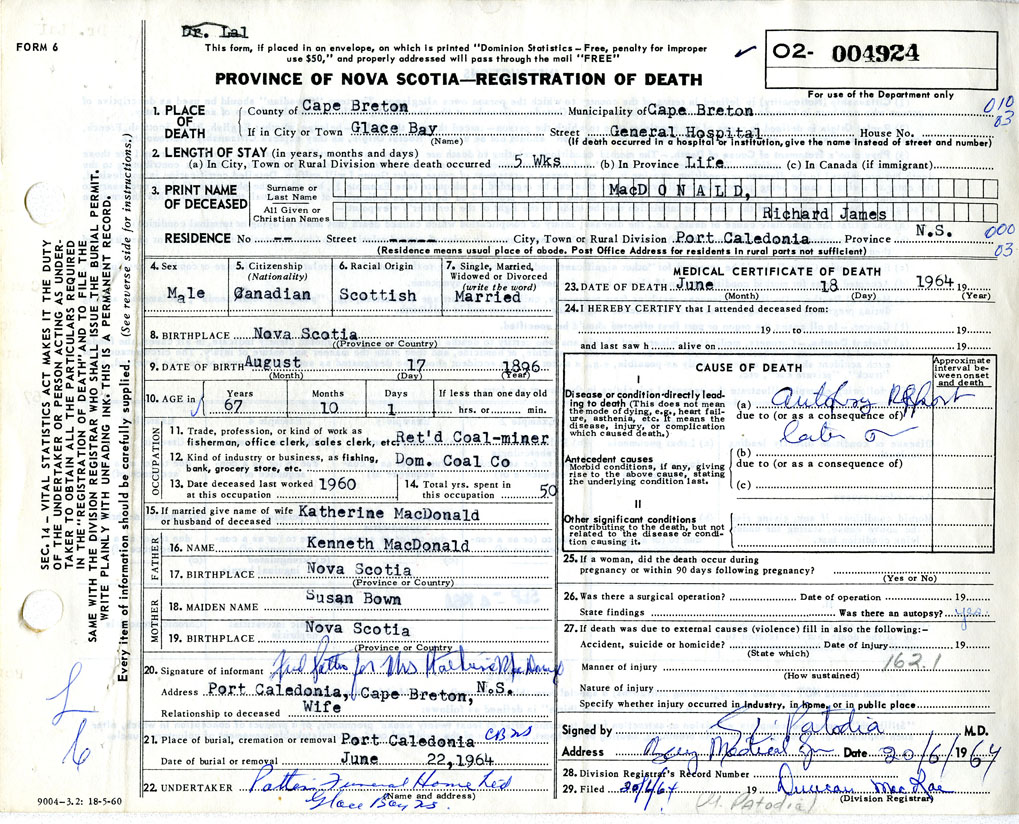 Dr. Lal
FORM 6
This form, if placed in an envelope, on which is printed "Dominion Statistics – Free, penalty for improper
use $50," and properly addressed will pass through the mail "FREE"
PROVINCE OF NOVA SCOTIA—REGISTRATION OF DEATH
02- 004924
For use of the Department only
SEC. 14 – VITAL STATISTICS ACT MAKES IT THE DUTY
OF THE UNDERTAKER OR PERSON ACTING AS UNDER-
TAKER TO OBTAIN ALL THE PARTICULARS REQUIRED
IN THE "REGISTRATION OF DEATH" AND TO FILE THE
SAME WITH THE DIVISION REGISTRAR WHO SHALL ISSUE THE BURIAL PERMIT.
WRITE PLAINLY WITH UNFADING INK. THIS IS A PERMANENT RECORD.
Every item of information should be carefully supplied. (See reverse side for instructions.)
1. PLACE OF DEATH
County of Cape Breton Municipality of Cape Breton 010 03
If in City or Town Glace Bay Street General Hospital House No.
(Name) (If death occurred in a hospital or institution, give the name instead of street and number)
2. LENGTH OF STAY (in years, months and days)
(a) In City, Town or Rural Division where death occurred 5 Wks (b) In Province Life (c) In Canada (if immigrant)
3. PRINT NAME OF DECEASED
Surname or Last Name MacDONALD,
All Given or Christian Names Richard James
RESIDENCE No -- Street ----- City, Town or Rural Division Port Caledonia Province N.S. 000 03
(Residence means usual place of abode. Post Office Address for residents in rural parts not sufficient)
4. Sex Male
5. Citizenship (Nationality) Canadian
6. Racial Origin Scottish
7. Single, Married, Widowed or Divorced (write the word) Married
8. BIRTHPLACE Nova Scotia
(Province or Country)
9. DATE OF BIRTH August 17 1896
(Month) (Day) (Year)
10. AGE in Years 67 Months 10 Days 1 If less than one day old hrs. or min.
OCCUPATION
11. Trade, profession, or kind of work as
fisherman, office clerk, sales clerk, etc Ret'd Coal-miner
12. Kind of industry or business, as fishing,
bank, grocery store, etc. Dom. Coal Co
13. Date deceased last worked at this occupation 1960
14. Total yrs. spent in this occupation 50
15. If married give name of wife or husband of deceased Katherine MacDonald
FATHER
16. NAME Kenneth MacDonald
17. BIRTHPLACE Nova Scotia
(Province or Country)
MOTHER
18. MAIDEN NAME Susan Bown
19. BIRTHPLACE Nova Scotia
(Province or Country)
20. Signature of informant for Mrs
Address Port Caledonia, Cape Breton, N.S.
Relationship to deceased Wife
21. Place of burial, cremation or removal Port Caledonia CB NS
Date of burial or removal June 22,1964
22. UNDERTAKER Patten Funeral Home Ltd
(Name and address)
Glace Bay NS.
9004–3.2: 18-5-60
MEDICAL CERTIFICATE OF DEATH
23. DATE OF DEATH June 18 1964 19
(Month) (Day) (Year)
24. I HEREBY CERTIFY that I attended deceased from:
19 to 19
and last saw h alive on 19
CAUSE OF DEATH
Approximate interval between onset and death
I
Disease or condition directly lead-
ing to death (This does not mean
the mode of dying, e.g., heart fail-
ure, asthenia, etc. It means the
disease, injury, or complication
which caused death.)
(a) Autopsy Report
due to (or as a consequence of)
later
Antecedent causes
Morbid conditions, if any, giving
rise to the above cause, stating
the underlying condition last.
(b)
due to (or as a consequence of)
(c)
II
Other significant conditions
contributing to the death, but not
related to the disease or condi-
tion causing it.
25. If a woman, did the death occur during
pregnancy or within 90 days following pregnancy?
(Yes or No)
26. Was there a surgical operation? Date of operation 19
State findings Was there an autopsy? yes
27. If death was due to external causes (violence) fill in also the following:–
Accident, suicide or homicide? Date of injury 19
(State which)
Manner of injury 162.1
(How sustained)
Nature of injury
Specify whether injury occurred in industry, in home, or in public place
Signed by Patodia M.D.
Address Bay Medical Date 20/6/1964
28. Division Registrar's Record Number
29. Filed 20/6/64 19 Duncan MacRae
(Division Registrar)